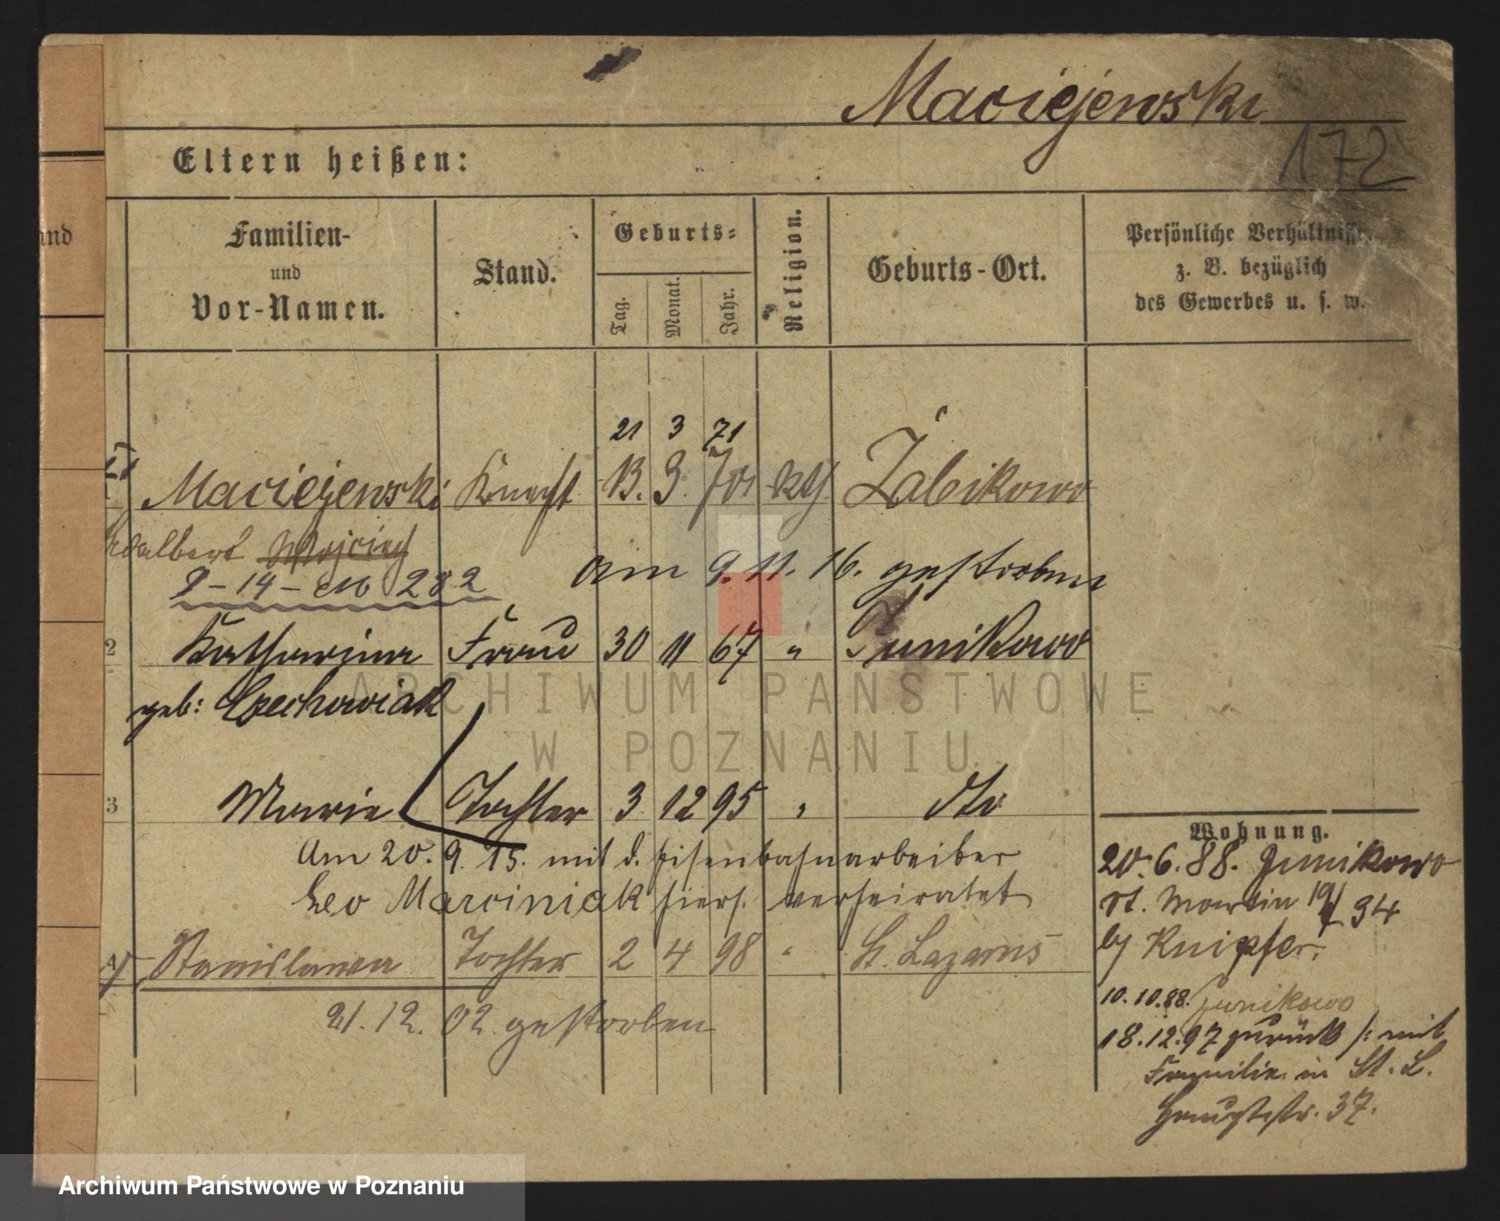 Maciejewski
172
Eltern heißen:
und
Familien-
und
Vor-Namen.
Stand.
Geburts-
Tag.
Monat.
Jahr.
Religion.
Geburts-Ort.
Persönliche Verhältnisse
z. B. bezüglich
des Gewerbes u. s. w.
21 3 71
Maciejewski Knecht 13. 3. 70 Żabikowo
Adalbert Wojciech
am 9. 11. 16. gestorben
2-14- 282
2 Katharina Frau 30 11 67 " Junikowo
geb: Czechowiak
ARCHIWUM PAŃSTWOWE
W POZNANIU
3 Marie Tochter 3 12 95 " dto
Am 20. 9. 15. mit d. Eisenbahnarbeiter
Leo Marciniak hiers. verheiratet
4 Stanislawa Tochter 2 4 98 " St. Lazarus
21. 12. 02 gestorben
Wohnung.
20. 6. 88. Junikowo
St. Martin 34
by Knipfer.
10. 10. 88. Junikowo
18. 12. 97 zurück /: mit
Familie in St. L.
Hauptstr. 37.
Archiwum Państwowe w Poznaniu